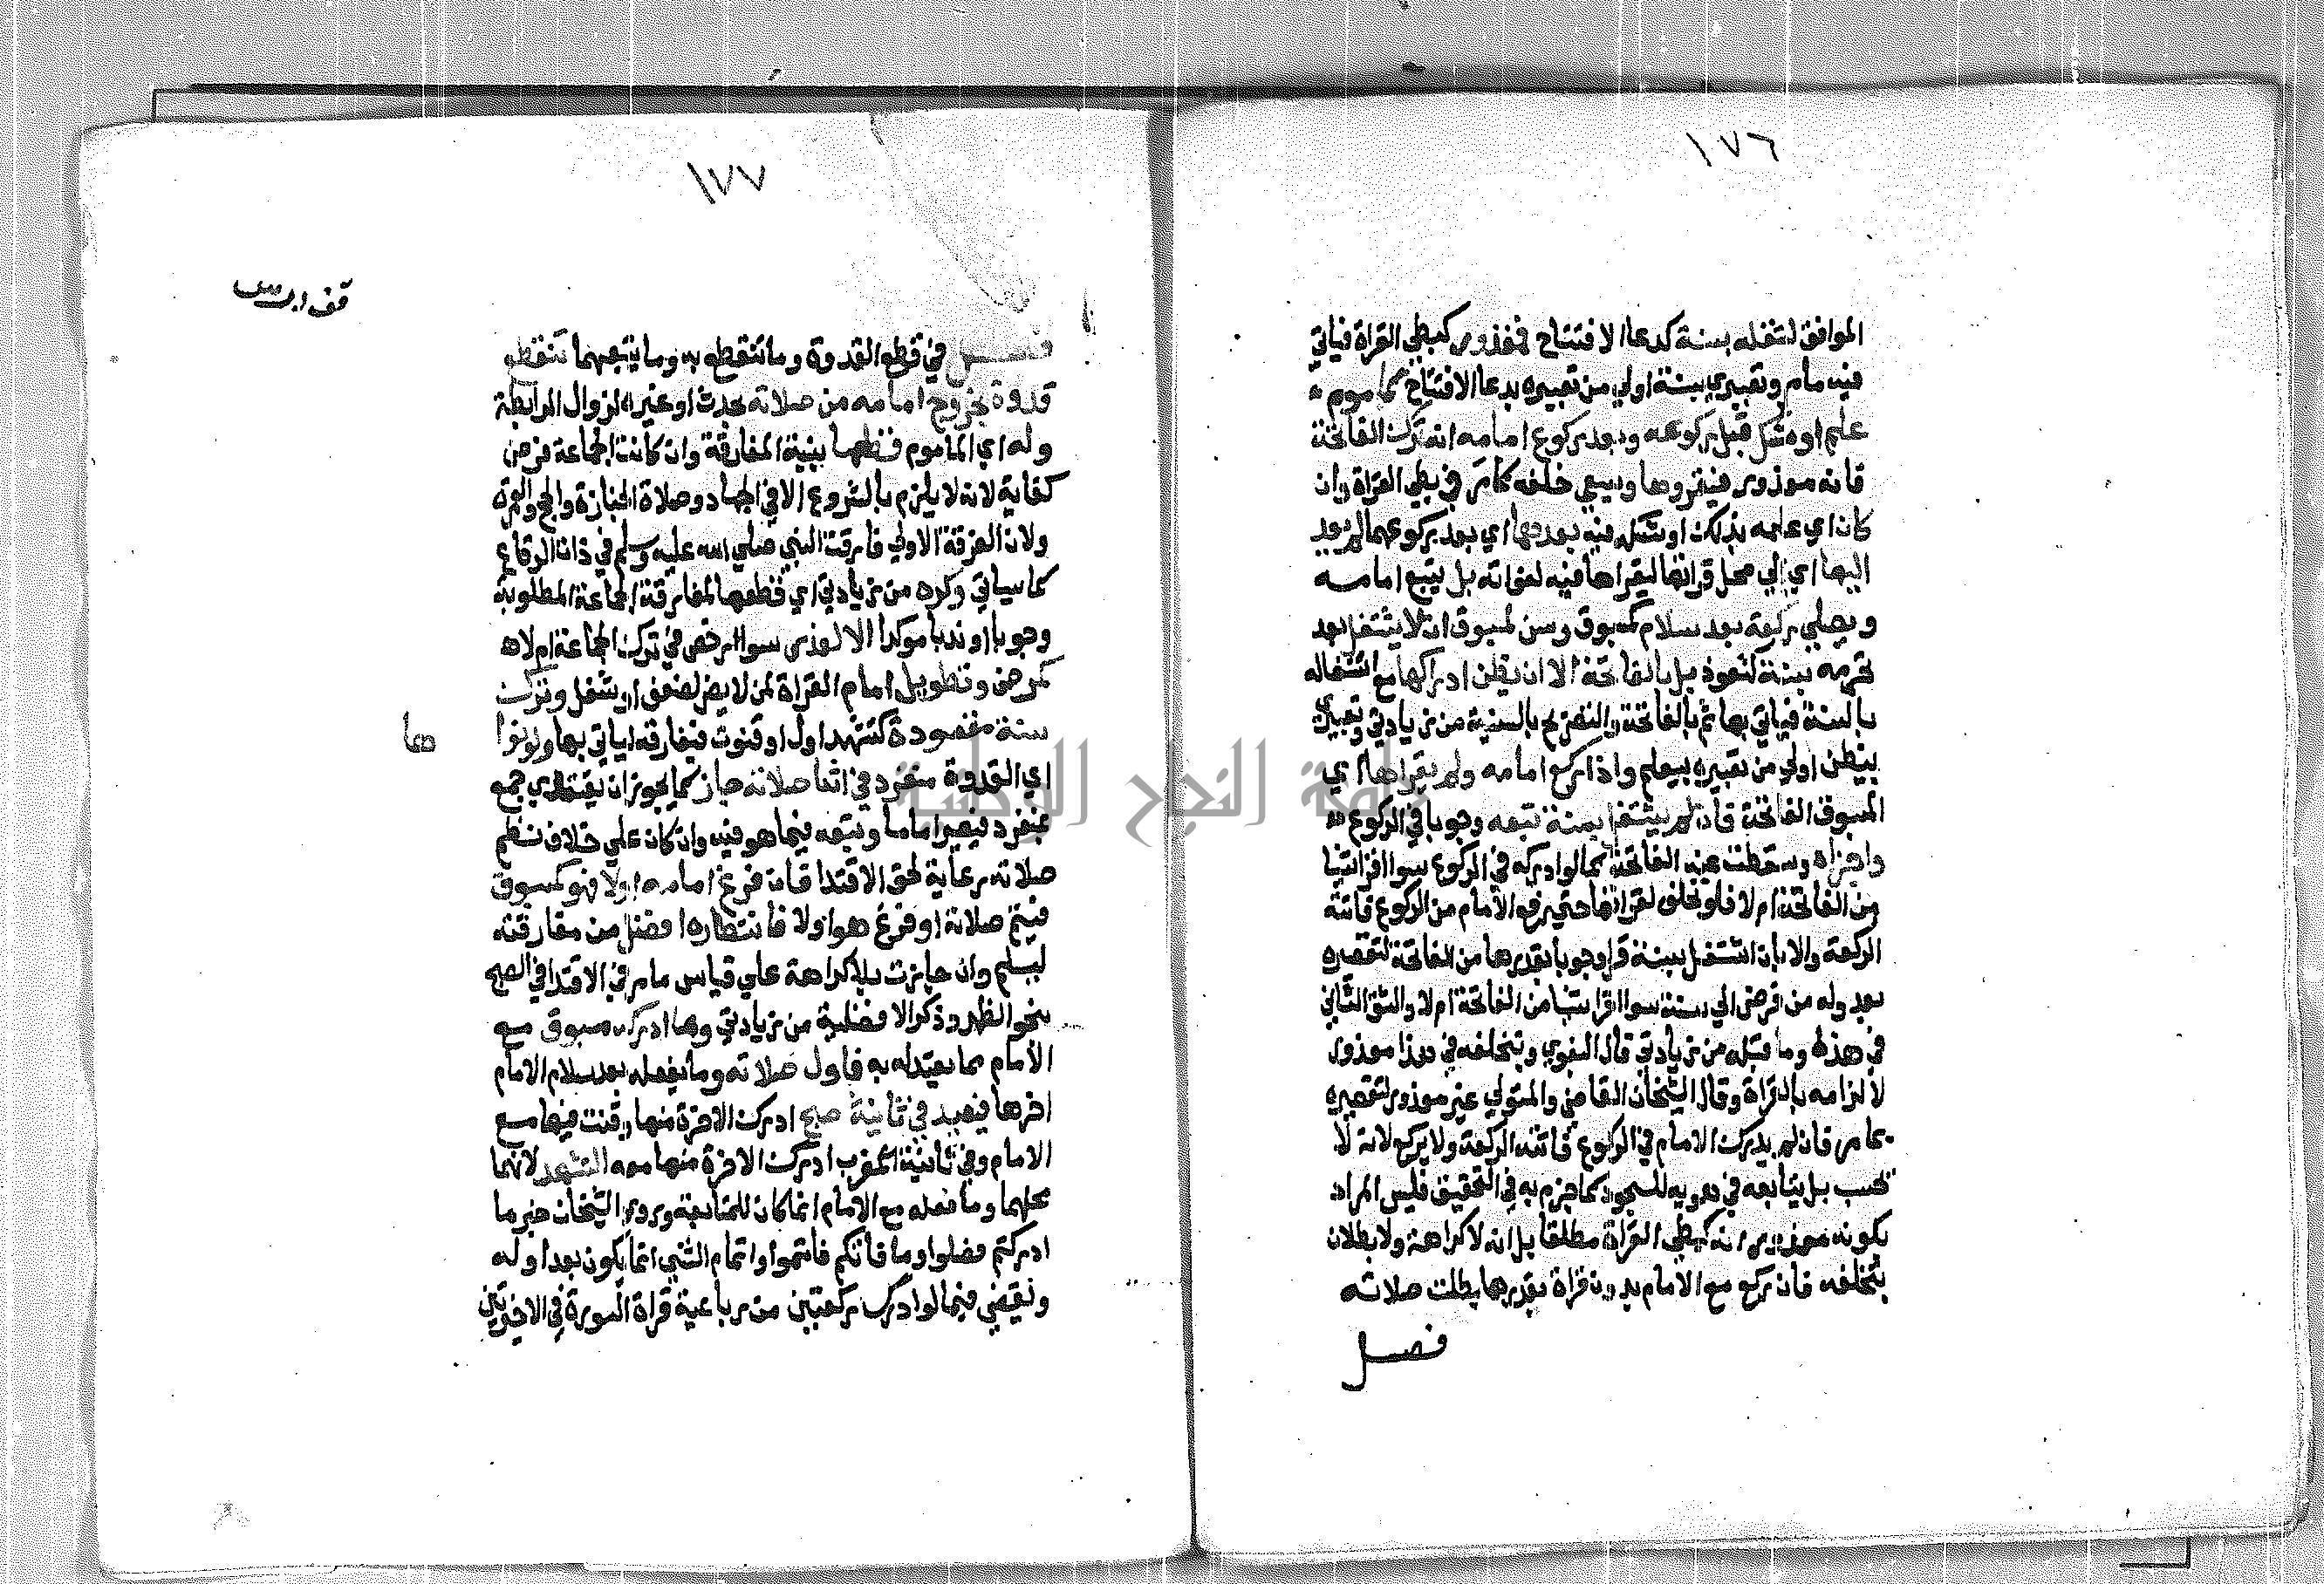 ١٧٦
الموافق لشغله بسنة كدعا الافتتاح فمعذور كبطي القراة فياتي
فيه مامر وتعبيري بسنة اولي من تعبيره بدعا الافتتاح كماموم
علم او شك قبل ركوعه وبعد ركوع امامه انه ترك الفاتحة
فانه معذور فيقروها ويسعي خلفه كما مر في بطي القراة وان
كان اي علمه بذلك او شكه فيه بعدهما اي بعد ركوعهما لم يعد
اليها اي الي محل قراتها ليقراها فيه لفواته بل يتبع امامه
ويصلي ركعة بعد سلام كمسبوق وسن لمسبوق ان لا يشتغل بعد
تحرمه بسنة كتعوذ بل بالفاتحة الا ان يظن ادراكها مع اشتغاله
بالسنة فياتي بها ثم بالفاتحة والتصريح بالسنية من زيادتي وتعبيري
بيظن اولي من تعبيره بيعلم واذا ركع امامه ولم يقراها اي
المسبوق الفاتحة فان لم يشتغل بسنة تبعه وجوبا في الركوع
واجزاه وسقطت عنه الفاتحة كما لو ادركه في الركوع سوا اقرا شيا
من الفاتحة ام لا فلو تخلف لقراتها حتي رفع الامام من الركوع فاتته
الركعة والا بان اشتغل بسنة قرا وجوبا بقدرها من الفاتحة لتقصيره
بعدوله من فرض الي سنة سوا اقرا شيا من الفاتحة ام لا والشق الثاني
في هذه وما قبله من زيادتي قال البغوي وتخلفه في هذا معذور
لالزامه بالقراة وقال الشيخان القاضي والمتولي غير معذور لتقصيره
بما مر فان لم يدرك الامام في الركوع فاتته الركعة ولا يركع لانه لا
تحسب بل يتابعه في هويه للسجود كما جزم به في التحقيق فليس المراد
بكونه معذورا انه كبطي القراة مطلقا بل انه لا كراهة ولا بطلان
بتخلفه فان ركع مع الامام بدون قراة بقدرها بطلت صلاته
فصل
١٧٧
قف
فصل في قطع القدوة وما تنقطع به وما يتبعهما تنقطع
قدوة بخروج امامه من صلاته بحدث او غيره لزوال الرابطة
وله اي الماموم قطعها بنية المفارقة وان كانت الجماعة فرض
كفاية لانه لا يلزم بالشروع الا في الجهاد وصلاة الجنازة والحج والعمرة
ولان الفرقة الاولي فارقت النبي صلي الله عليه وسلم في ذات الرقاع
كما سياتي وكره من زيادتي اي قطعها لمفارقة الجماعة المطلوبة
وجوبا او ندبا موكدا الا لعذر سوا ارخص في ترك الجماعة ام لا
كمرض وتطويل امام القراة لمن لا يصبر لضعف او شغل وترك
سنة مقصودة كتشهد اول او قنوت فيفارقه لياتي بها ولو نوا
ها
اي القدوة منفرد في اثنا صلاته جاز كما يجوز ان يقتدي جمع
بمنفرد فيصير اماما وتبعه فيما هو فيه وان كان علي خلاف نظم
صلاته رعاية لحق الاقتدا فان فرغ امامه اولا فهو كمسبوق
فيتم صلاته او فرغ هو اولا فانتظاره افضل من مفارقته
ليسلم وان جازت بلا كراهة علي قياس ما مر في الاقتدا في الصبح
بنحو الظهر وذكر الافضلية من زيادتي وما ادركه مسبوق مع
الامام مما يعتد له به فاول صلاته وما يفعله بعد سلام الامام
اخرها فيعيد في ثانية صبح ادرك الاخرة منها وقنت فيها مع
الامام وفي ثانية المغرب ادرك الاخرة منها معه التشهد لانها
محلهما وما فعله مع الامام انما كان للمتابعة وروي الشيخان خبر ما
ادركتم فصلوا وما فاتكم فاتموا واتمام الشي انما يكون بعد اوله
ونقيضي فيما لو ادرك ركعتين من رباعية قراة السورة في الاخيرتين
جامعة النجاح الوطنية